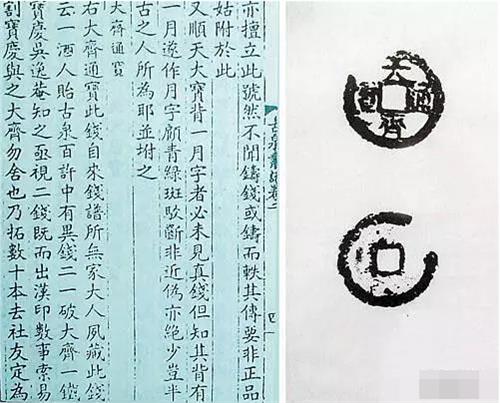 古泉叢話卷二
四
亦擅立此號然不聞鑄錢或鑄而軼其傳要非正品
姑附於此
又順天大寶背一月字者必未見真錢但知其背有
一月遂作月字顧青綠斑駁斷非近偽亦絕少豈半
古之人所為耶並坿之
大齊通寶
右大齊通寶此錢自來錢譜所無家大人夙藏此錢
云一酒人貽古泉百許中有異錢二一破大齊一鎧
寶慶吳逸菴知之亟視二錢既而出漢印數事索易
割寶慶與之大齊勿舍也乃拓數十本去社友定為
大齊通寶